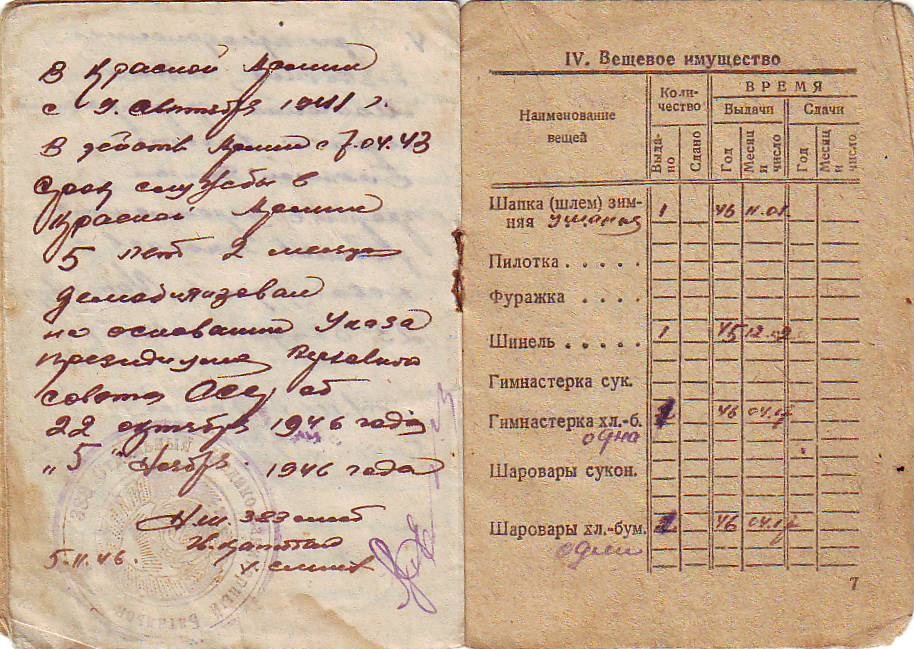 В Красной Армии
с 9. сентября 1941 г.
В действ Армии с 7.04.43
Срок службы в
Красной Армии
5 лет 2 месяца
демобилизован
на основании Указа
президиума Верховного
совета СССР от
22 октября 1946 года
"5" Ноября 1946 года
Нш 383
5.11.46.
IV. Вещевое имущество
Наименование вещей
Количество
ВРЕМЯ
Выдачи
Сдачи
Выдано
Сдано
Год
Месяц и число
Год
Месяц и число
Шапка (шлем) зим-
няя ушанка 1 46 11.01
Пилотка . . . . .
Фуражка . . . .
Шинель . . . . . 1 45 12.
Гимнастерка сук.
Гимнастерка хл.-б. 46 04.
одна
Шаровары сукон.
Шаровары хл.-бум. 46 04.
одни
7